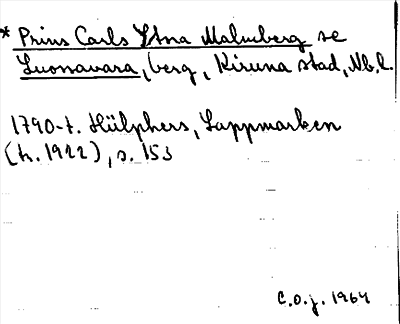 * Prins Carls Stna Malmberg se
Luossavara, berg, Kiruna stad, Nb.l.
1790-t. Hülphers, Lappmarken
(tr. 1922), s. 153
C.O.J. 1964